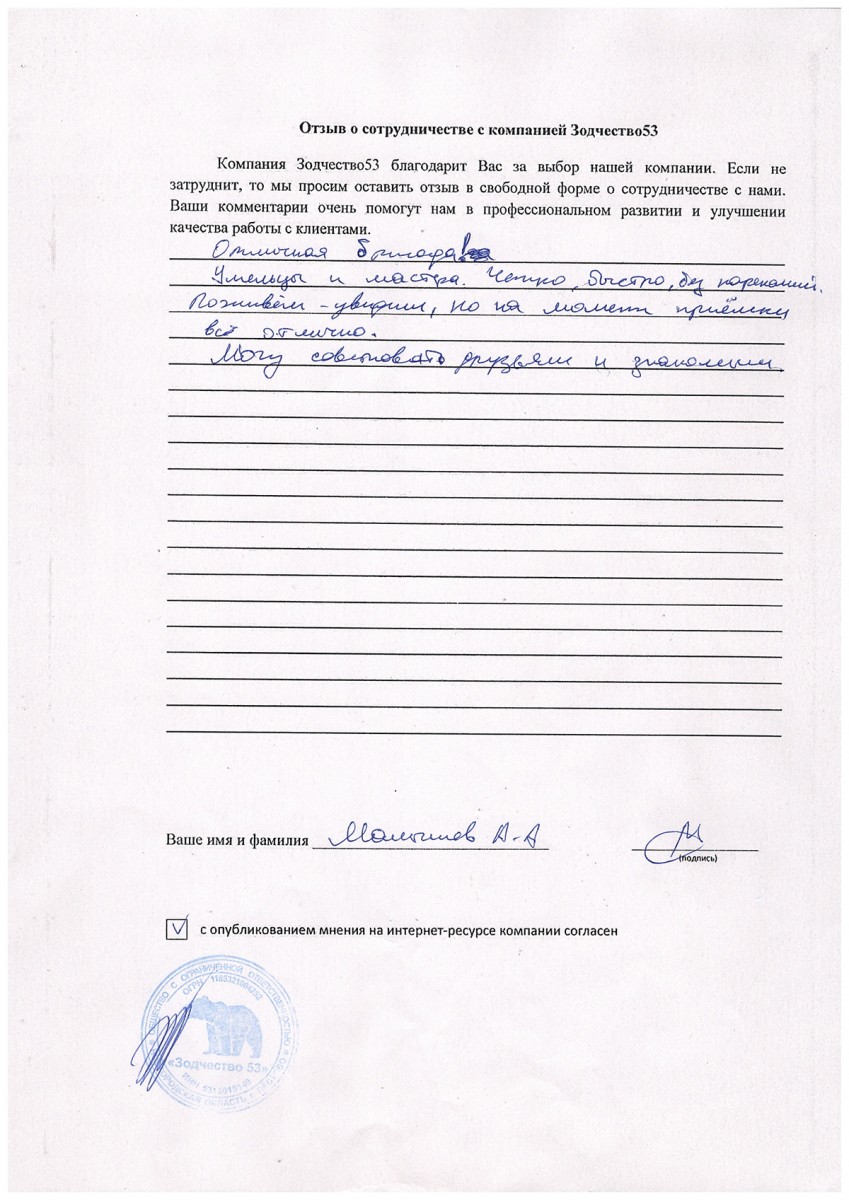 Отзыв о сотрудничестве с компанией Зодчество53
Компания Зодчество53 благодарит Вас за выбор нашей компании. Если не
затруднит, то мы просим оставить отзыв в свободной форме о сотрудничестве с нами.
Ваши комментарии очень помогут нам в профессиональном развитии и улучшении
качества работы с клиентами.
Отличная бригада!
Умельцы и мастера. Четко, быстро, без нареканий.
Поживём - увидим, но на момент приёмки
всё отлично.
Могу советовать друзьям и знакомым.
Ваше имя и фамилия А-А
(подпись)
с опубликованием мнения на интернет-ресурсе компании согласен
ОБЩЕСТВО С ОГРАНИЧЕННОЙ ОТВЕТСТВЕННОСТЬЮ
ОГРН
«Зодчество 53»
ИНН
ОБЛАСТЬ